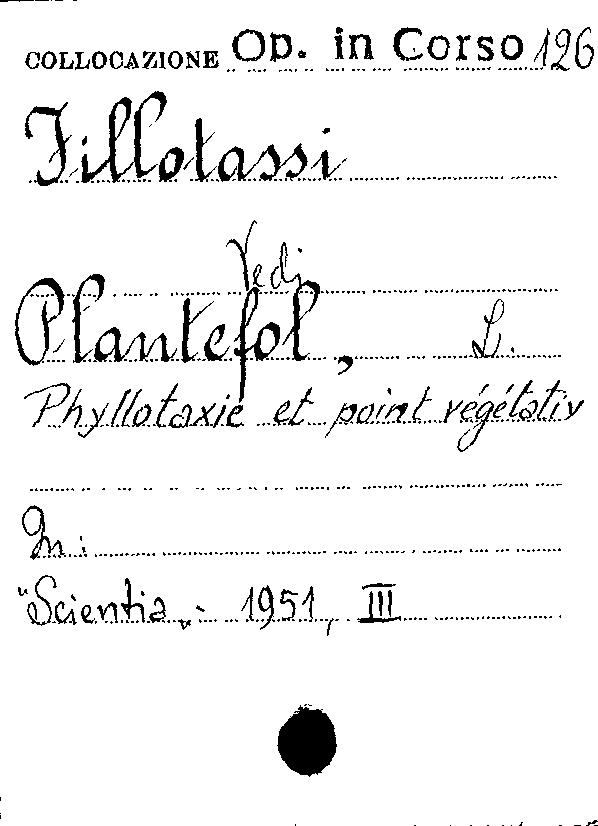 COLLOCAZIONE Op. in Corso 126
Fillotassi
Vedi
Plantefol, L.
Phyllotaxie et point végétativ
In:
"Scientia„. 1951, III